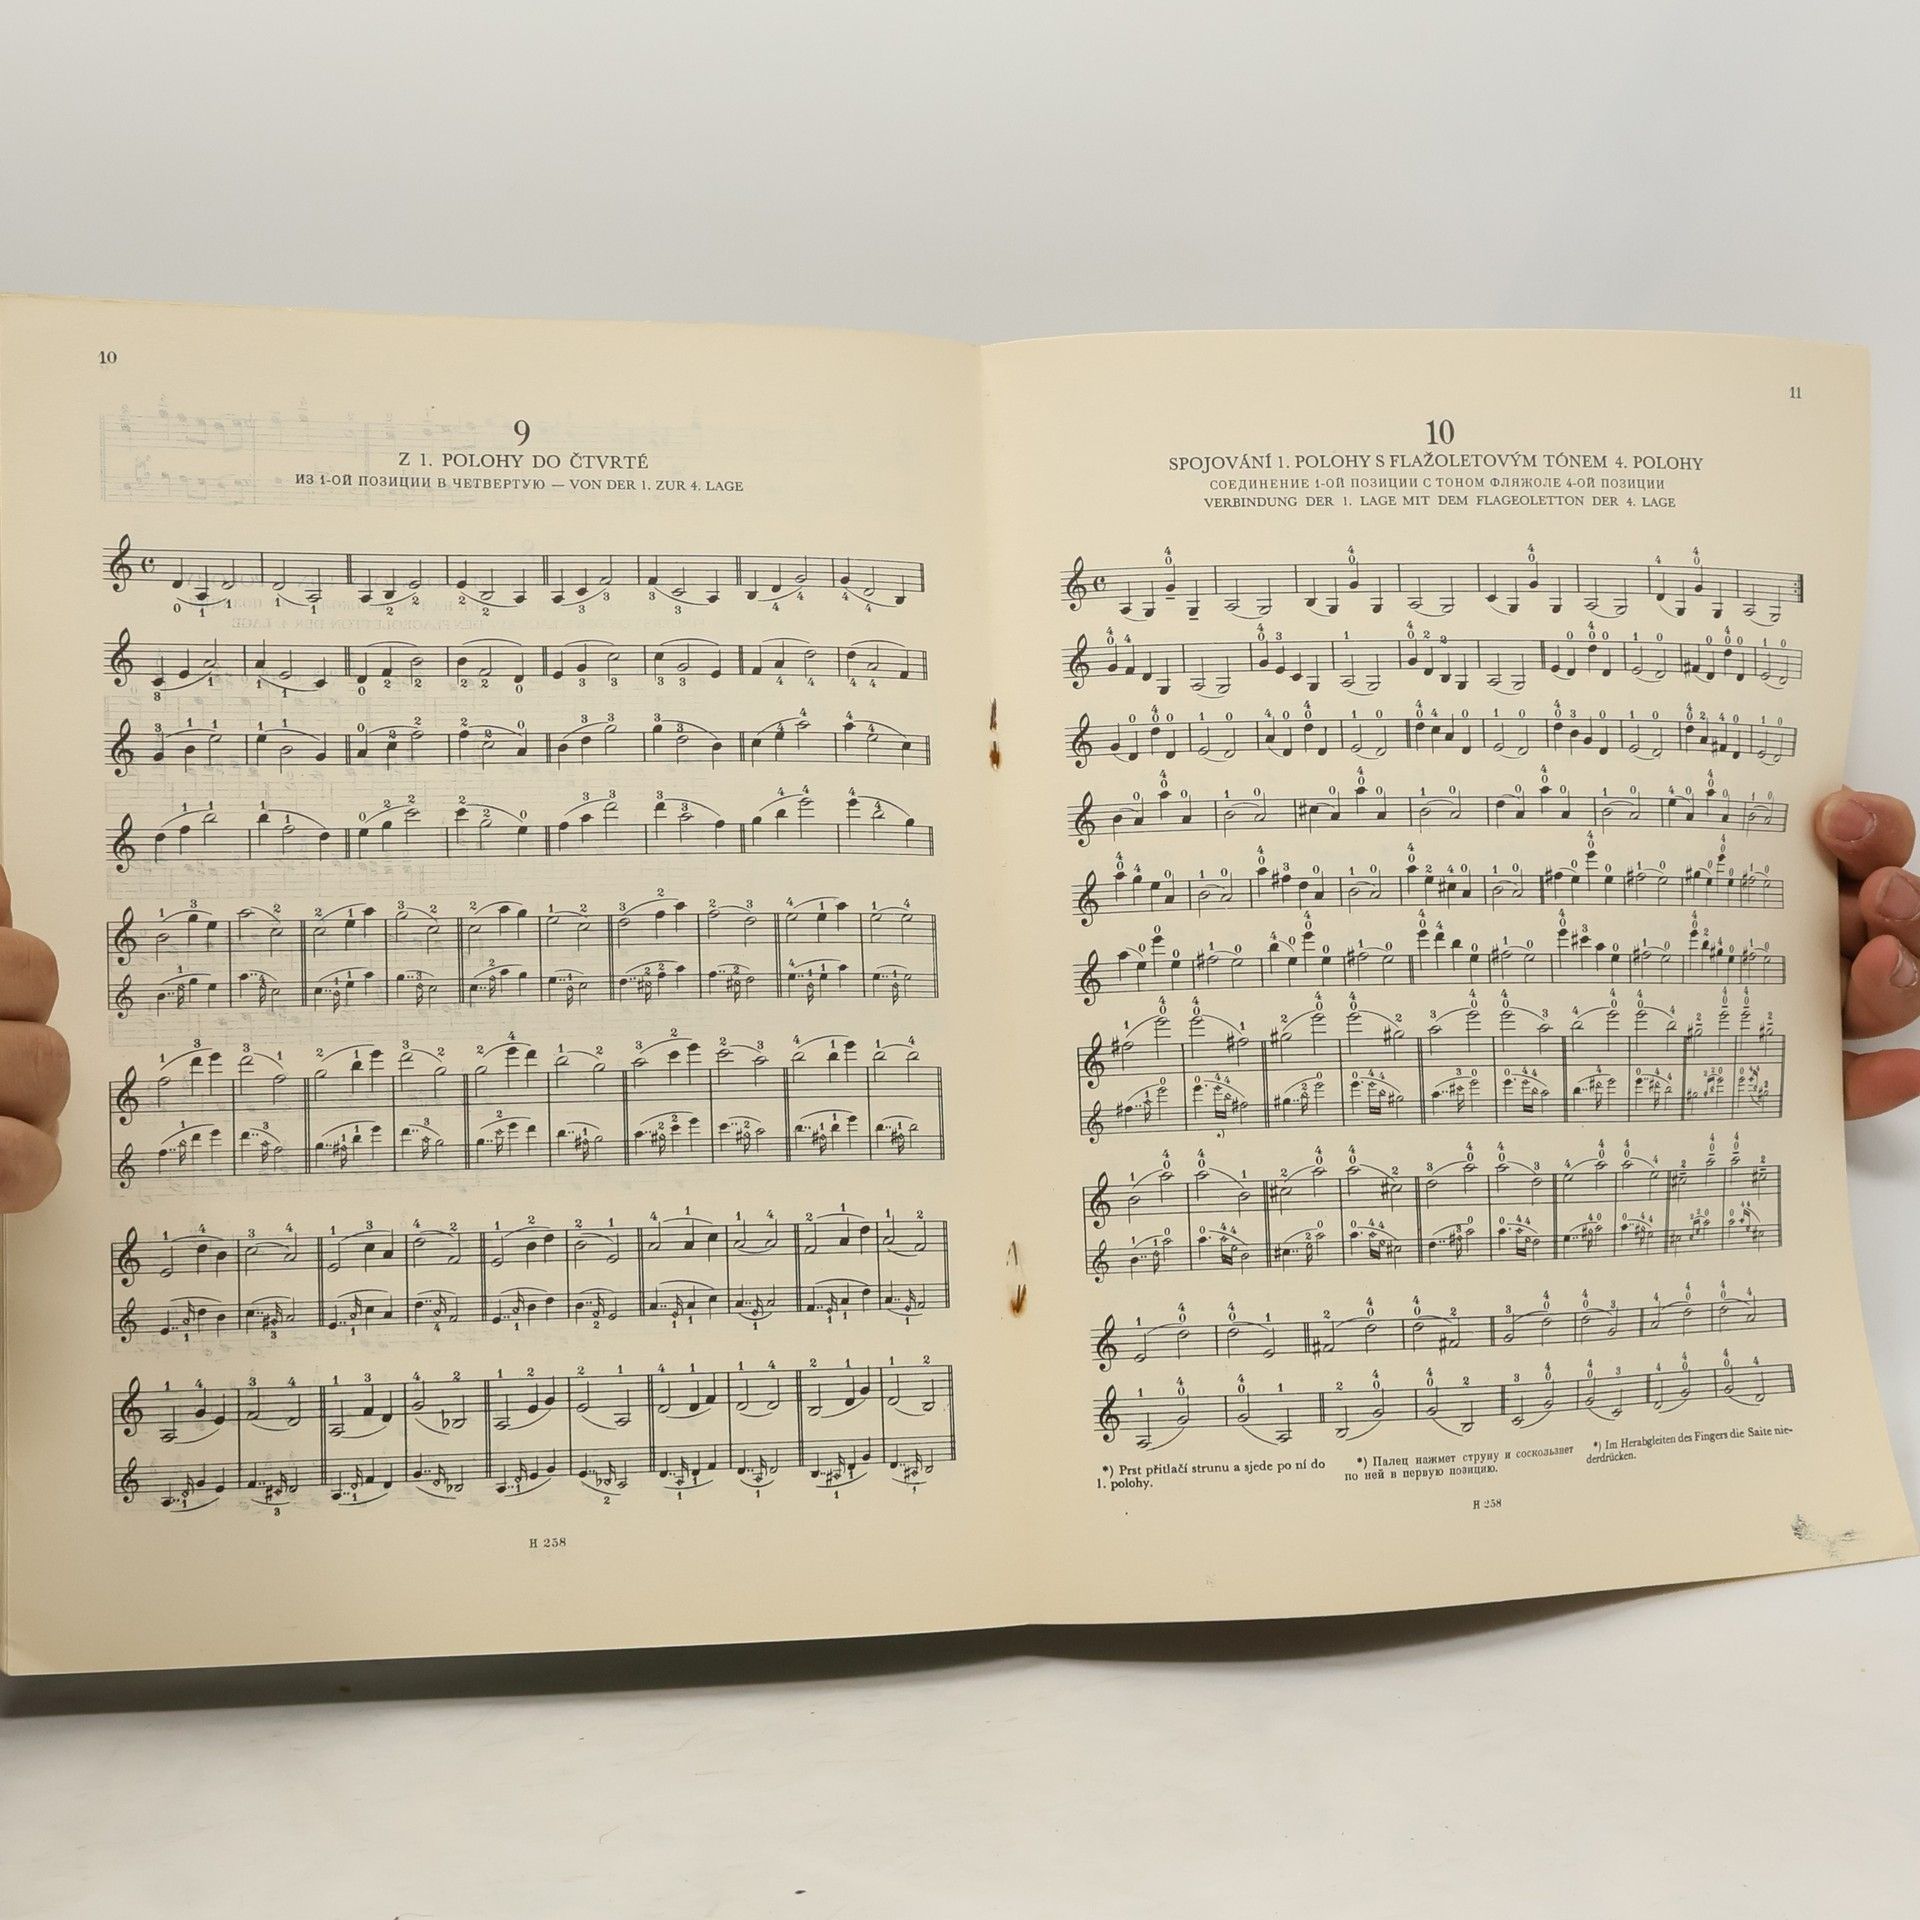 10
9
Z 1. POLOHY DO ČTVRTÉ
ИЗ 1-ОЙ ПОЗИЦИИ В ЧЕТВЕРТУЮ — VON DER 1. ZUR 4. LAGE
H 258
11
10
SPOJOVÁNÍ 1. POLOHY S FLAŽOLETOVÝM TÓNEM 4. POLOHY
СОЕДИНЕНИЕ 1-ОЙ ПОЗИЦИИ С ТОНОМ ФЛЯЖОЛЕ 4-ОЙ ПОЗИЦИИ
VERBINDUNG DER 1. LAGE MIT DEM FLAGEOLETTON DER 4. LAGE
*) Prst přitlačí strunu a sjede po ní do
1. polohy.
*) Палец нажмет струну и соскользнет
по ней в первую позицию.
*) Im Herabgleiten des Fingers die Saite nie-
derdrücken.
H 258